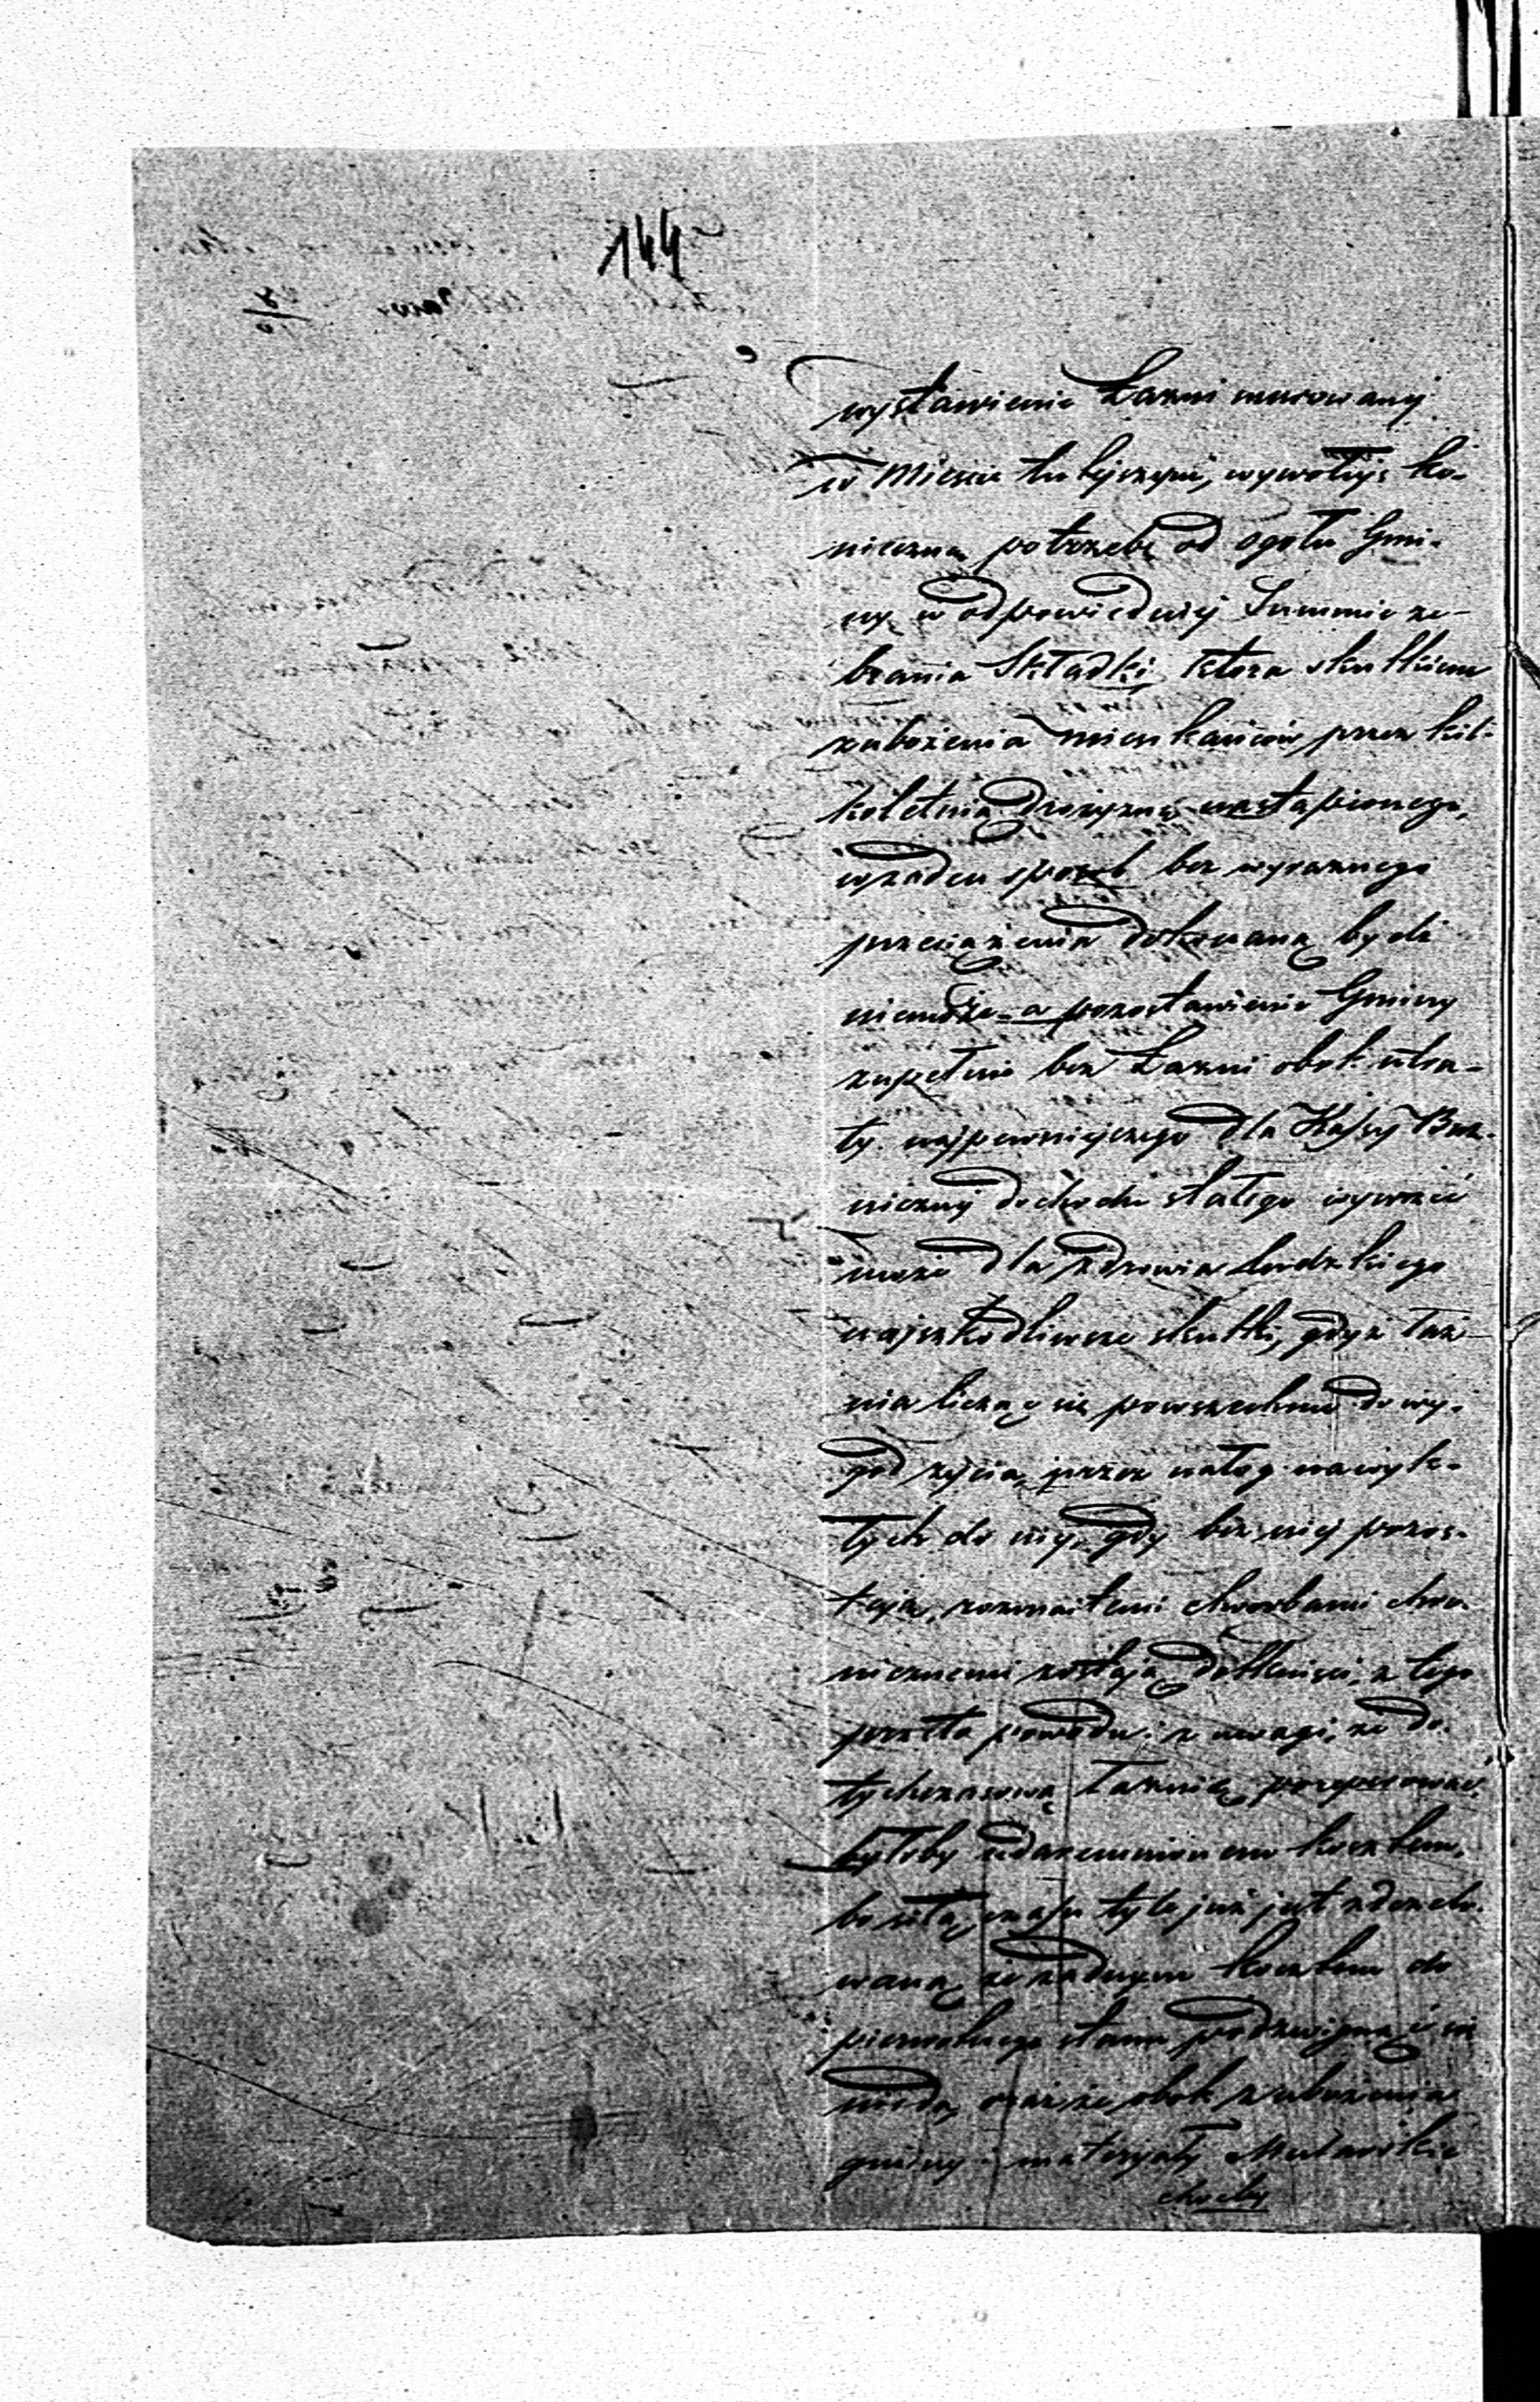 144
wystawienie Łazni murowanej
w Mieście tutejszym, wywołuje ko-
nieczną potrzebę od ogółu Gmi-
ny w odpowiedniej Summie ze-
brania składki, która skutkiem
zubożenia mieszkańców przez kil-
koletnią drożyznę nastąpionego,
w żaden sposób bez wyraznego
przeciążenia dokonaną bydź
niemoże - a pozostawienie Gminy
zupełnie bez Łazni obok utra-
ty najpewniejszego dla Kassy Boż-
niczny dochodu stałego wywrzeć
może dla zdrowia ludzkiego
najszkodliwsze skutki, gdyż łaź-
nia licząc się powszechnie do wy-
gód życia, przez nałóg nawyk-
łych do niej, gdy bez niej pozos-
tają, rozmaitemi chorobami chro-
nicznemi zostają dotknięci, z tego
przeto powodu i z uwagi, że do-
tychczasową łaznię poreperować
byłoby nadaremnionem kosztem,
bo siłą czasu tyle już jest zdezelo-
waną, że żadnym kosztem do
pierwotnego stanu podzwignąć się
nieda, oraz że obok zubożenia
gminy i materyały Mularskie
choćby